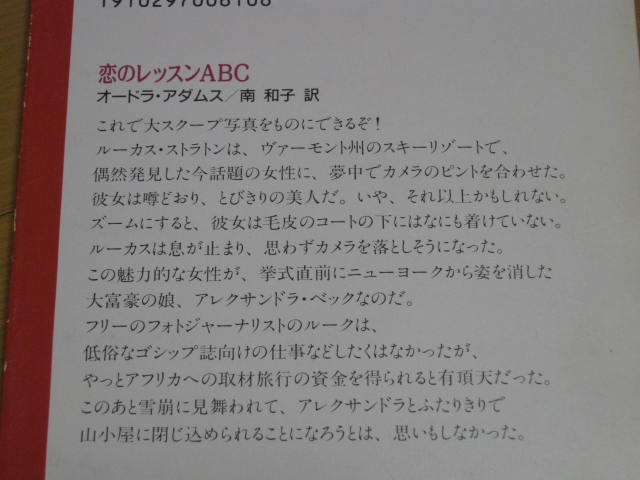 恋のレッスンABC
オードラ・アダムス/南 和子 訳
これで大スクープ写真をものにできるぞ!
ルーカス・ストラトンは、ヴァーモント州のスキーリゾートで、
偶然発見した今話題の女性に、夢中でカメラのピントを合わせた。
彼女は噂どおり、とびきりの美人だ。いや、それ以上かもしれない。
ズームにすると、彼女は毛皮のコートの下にはなにも着けていない。
ルーカスは息が止まり、思わずカメラを落としそうになった。
この魅力的な女性が、挙式直前にニューヨークから姿を消した
大富豪の娘、アレクサンドラ・ベックなのだ。
フリーのフォトジャーナリストのルークは、
低俗なゴシップ誌向けの仕事などしたくはなかったが、
やっとアフリカへの取材旅行の資金を得られると有頂天だった。
このあと雪崩に見舞われて、アレクサンドラとふたりきりで
山小屋に閉じ込められることになろうとは、思いもしなかった。